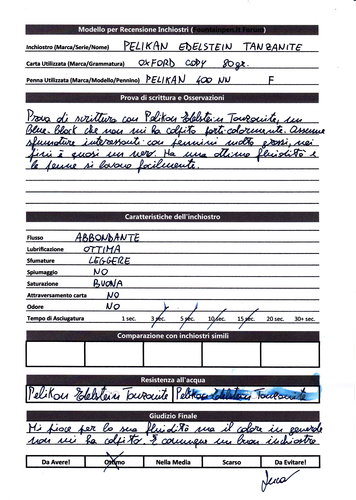 Modello per Recensione Inchiostri (fountainpen.it Forum)
Inchiostro (Marca/Serie/Nome) PELIKAN EDELSTEIN TANZANITE
Carta Utilizzata (Marca/Grammatura) OXFORD COPY 80gr.
Penna Utilizzata (Marca/Modello/Pennino) PELIKAN 400 NN F
Prova di scrittura e Osservazioni
Prova di scrittura con Pelikan Edelstein Tanzanite, un
Blue-Black che non mi ha colpito particolarmente. Assume
sfumature interessanti con pennini molto grossi, nei
fini è quasi un nero. Ha una ottima fluidità e
le penne si lavano facilmente.
Caratteristiche dell'inchiostro
Flusso ABBONDANTE
Lubrificazione OTTIMA
Sfumature LEGGERE
Spiumaggio NO
Saturazione BUONA
Attraversamento carta NO
Odore NO
Tempo di Asciugatura 1 sec. 3 sec. 5 sec. 10 sec. 15 sec. 20 sec. 30+ sec.
Comparazione con inchiostri simili
Resistenza all'acqua
Pelikan Edelstein Tanzanite Pelikan Edelstein Tanzanite
Giudizio Finale
Mi piace per la sua fluidità ma il colore in generale
non mi ha colpito. È comunque un buon inchiostro.
Da Avere! Ottimo Nella Media Scarso Da Evitare!